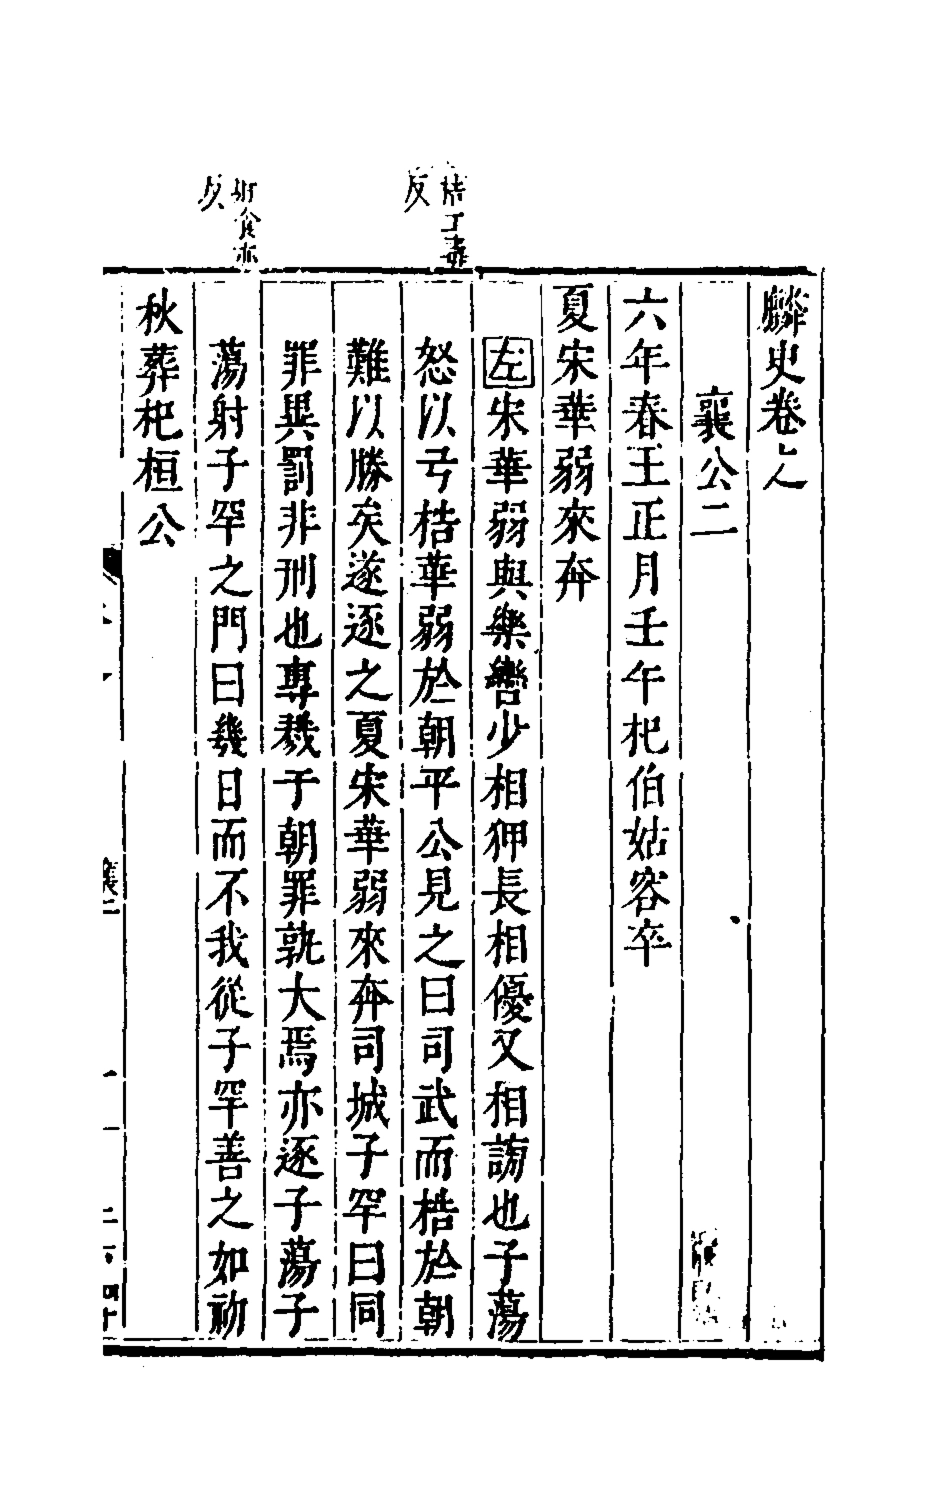 麟史卷
襄公二
六年春王正月壬午杞伯姑容卒
夏宋華弱來奔
左宋華弱與樂轡少相狎長相優又相謗也子蕩
梏工毒
反
怒以弓梏華弱於朝平公見之曰司武而梏於朝
難以勝矣遂逐之夏宋華弱來奔司城子罕曰同
罪異罰非刑也專戮于朝罪孰大焉亦逐子蕩子
射食亦
反
蕩射子罕之門曰幾日而不我從子罕善之如初
秋葬杞桓公
襄二